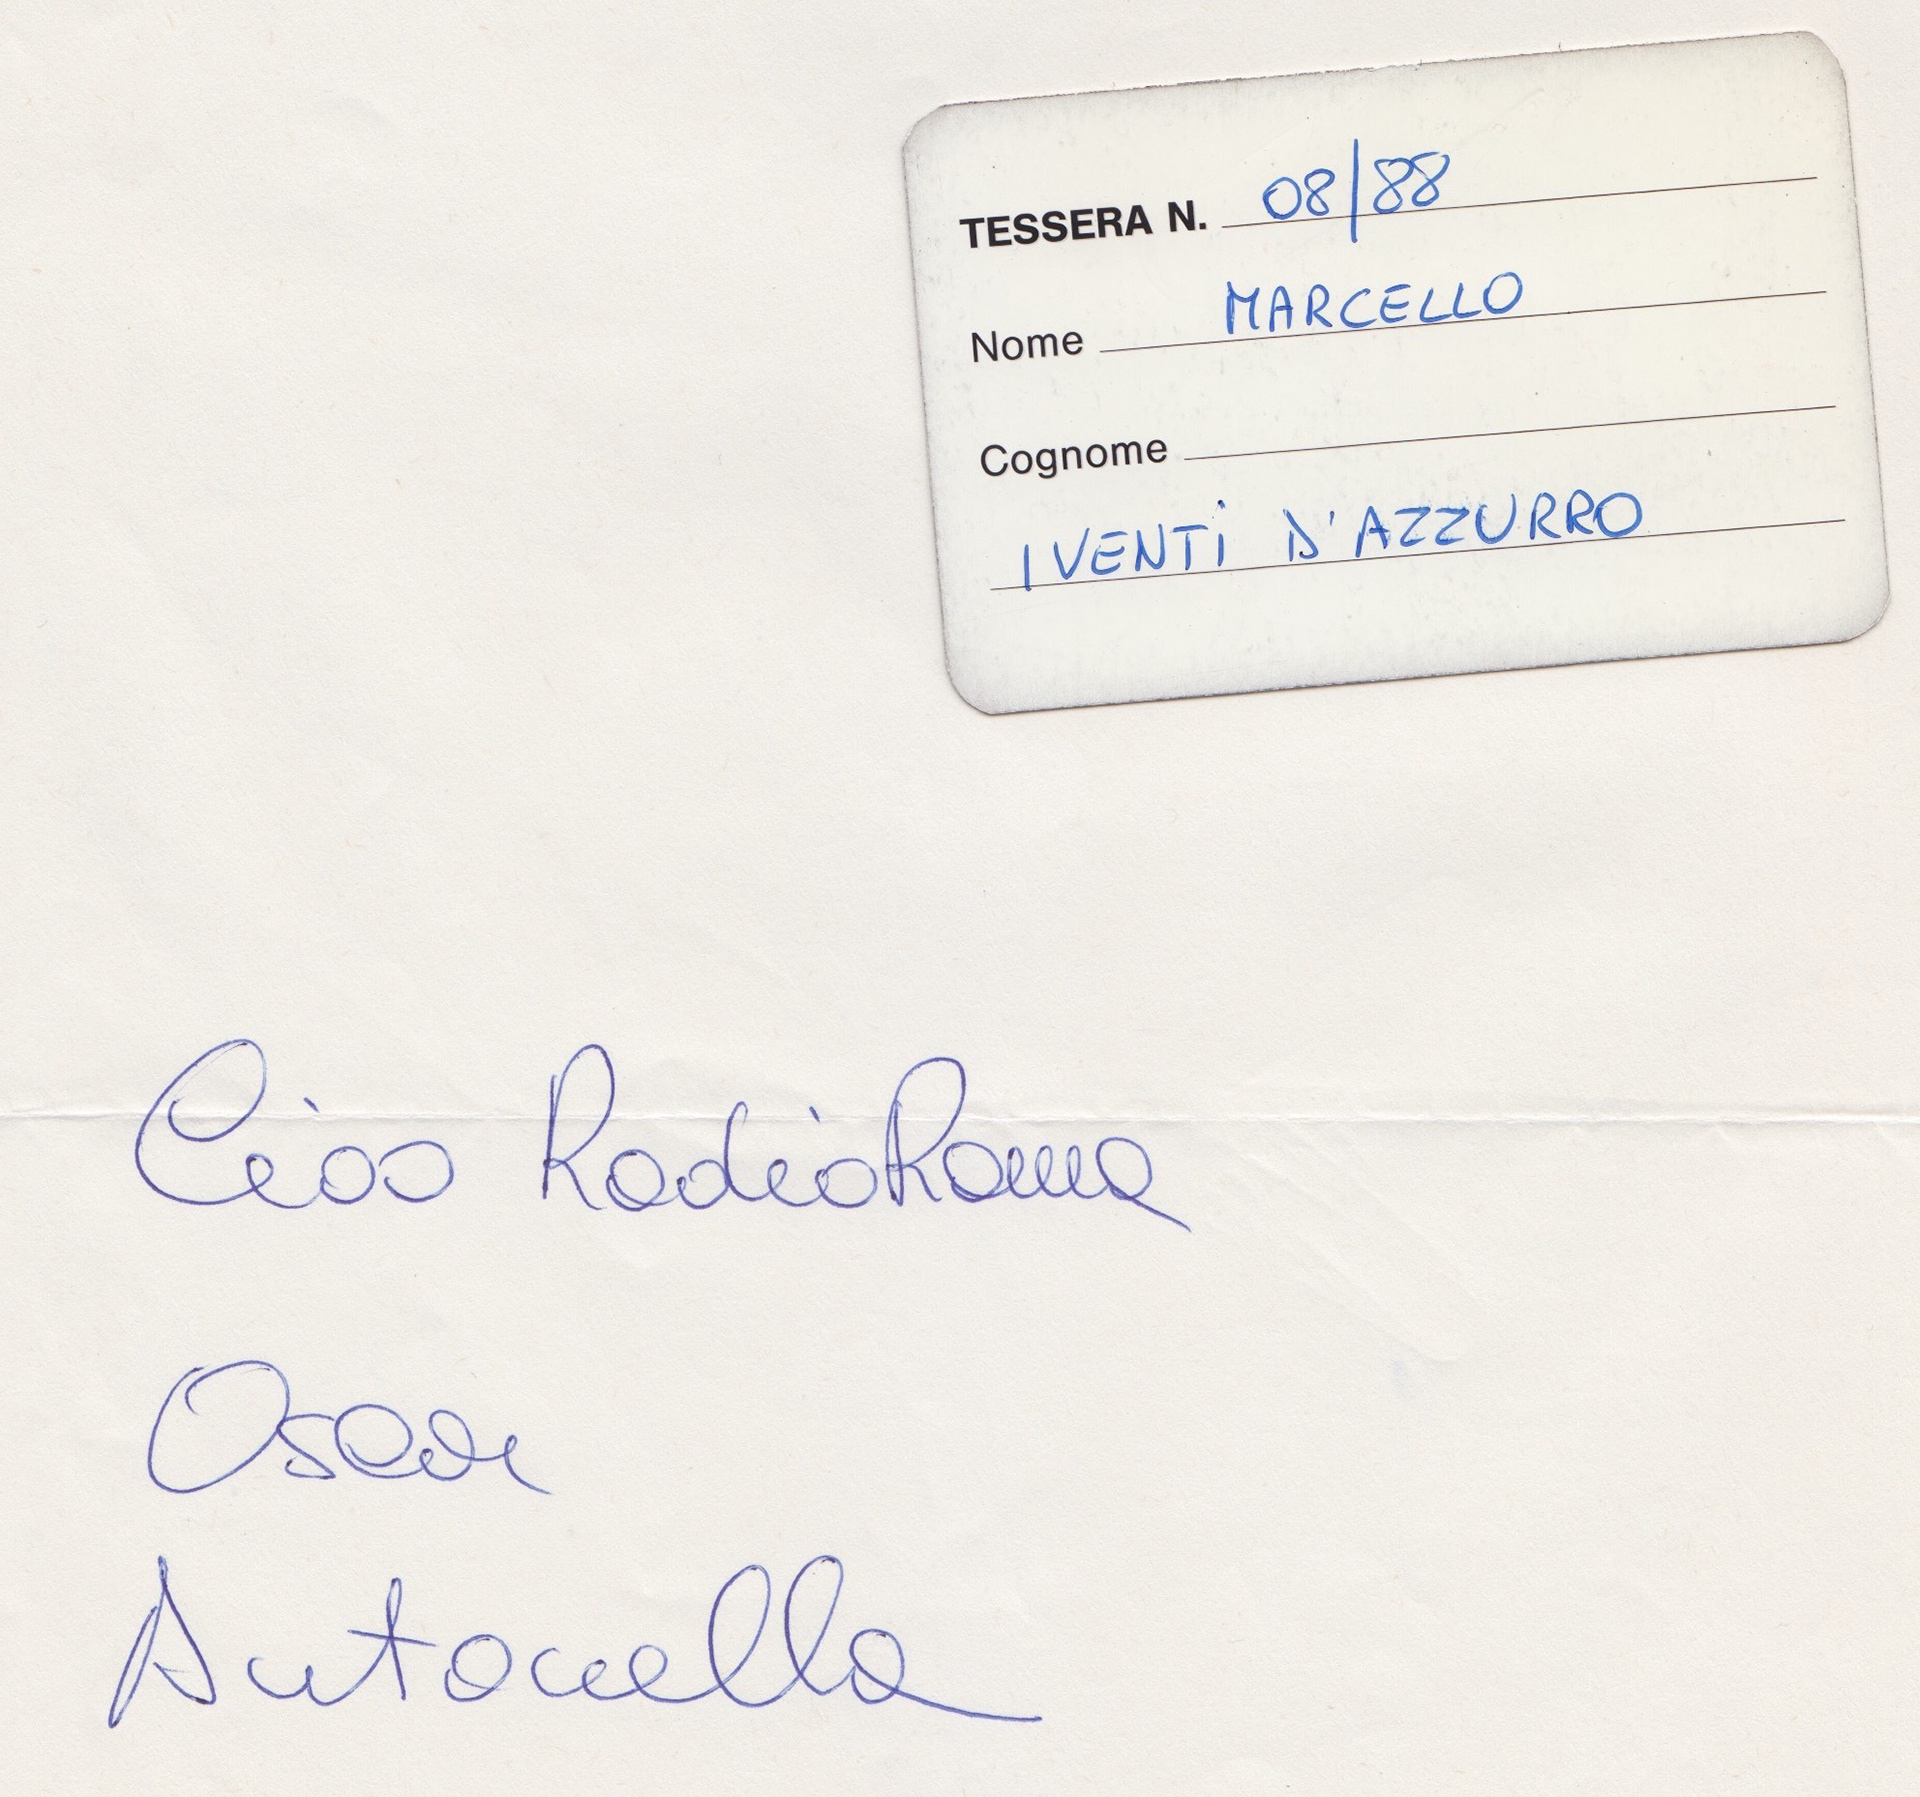 TESSERA N. 08/88
Nome MARCELLO
Cognome
I VENTI D'AZZURRO
Ciao RadioRama
Oscar
Antonella